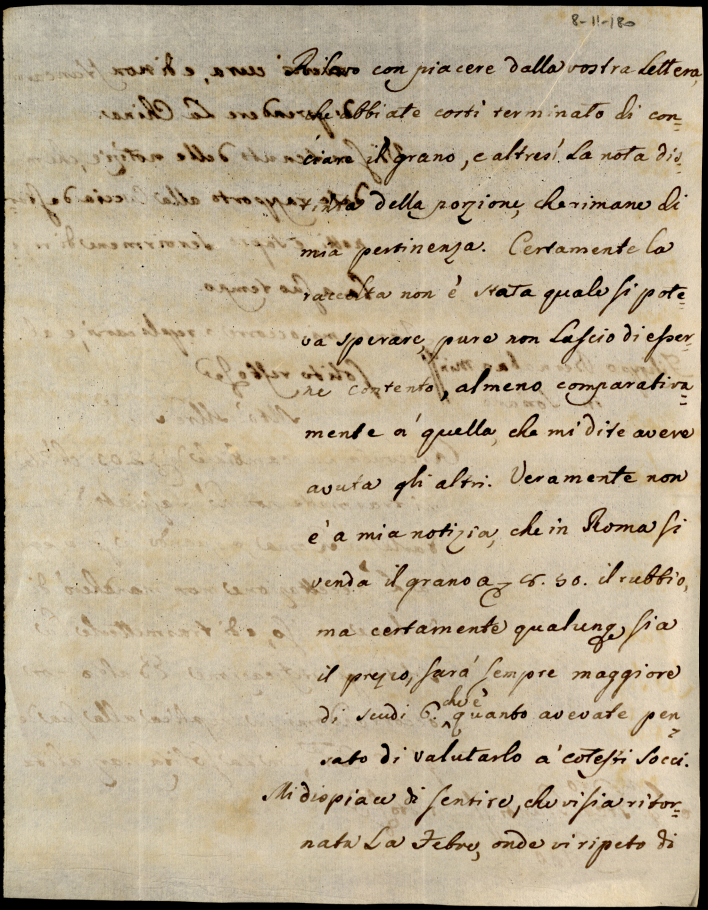 8-11-180
Rilevo con piacere dalla vostra Lettera,
che abbiate costì terminato di con=
ciare il grano, e altresì La nota dis=
tinta della porzione, che rimane di
mia pertinenza. Certamente la
raccolta non è stata quale si pote=
va sperare, pure non Lascio di esser=
ne contento, almeno comparativa=
mente a' quella, che mi dite avere
avuta gli altri. Veramente non
è a mia notizia, che in Roma si
venda il grano a 50. il rubbio,
ma certamente qualunq. sia
il prezzo, sarà sempre maggiore
di scudi 6. che è quanto avevate pen=
sato di valutarlo a' cotesti Socci.
Mi dispiace di sentire, che vi sia ritor=
nata La Febre, onde vi ripeto di